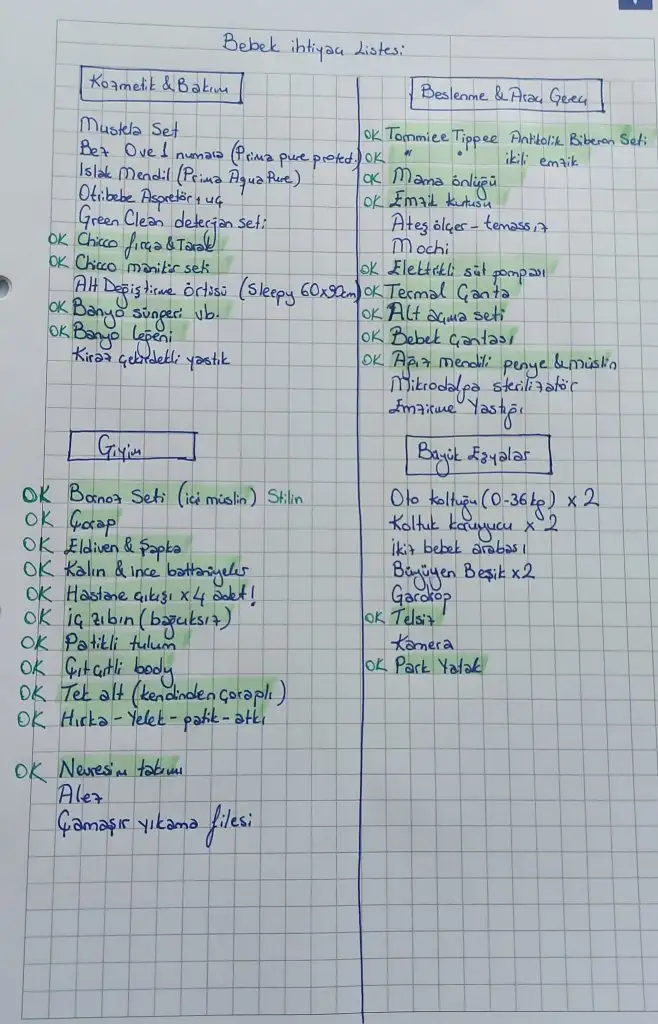 Bebek ihtiyacı Listesi
Kozmetik & Bakım
Mustela Set
Bez 0 ve 1 numara (Prima pure protect.)
Islak Mendil (Prima Aqua Pure)
Otribebe Aspretör, uç
Green Clean deterjan seti
OK Chicco fırça & Tarak
OK Chicco manikür seti
Alt Değiştirme örtüsü (Sleepy 60x90cm)
OK Banyo süngeri vb.
OK Banyo leğeni
Kiraz çekirdekli yastık
Giyim
OK Bornoz Seti (içi müslin) Stilin
OK Çorap
OK Eldiven & Şapka
OK Kalın & ince battaniyeler
OK Hastane çıkışı x 4 adet!
OK iç zıbın (bağcıksız)
OK Patikli tulum
OK Çıtçıtlı body
OK Tek alt (kendinden çoraplı)
OK Hırka - Yelek - patik - atkı
OK Nevresim takımı
Alez
Çamaşır yıkama filesi
Beslenme & Araç Gereç
OK Tommiee Tippee Antikolik Biberon Seti
OK " " ikili emzik
OK Mama önlüğü
OK Emzik kutusu
Ateş ölçer - temassız
Mochi
OK Elektrikli süt pompası
OK Termal Çanta
OK Alt açma seti
OK Bebek çantası
OK Ağız mendili penye & müslin
Mikrodalga sterilizatör
Emzirme Yastığı
Büyük Eşyalar
Oto koltuğu (0-36kg) x 2
Koltuk koruyucu x 2
ikiz bebek arabası
Büyüyen Beşik x2
Gardrop
OK Telsiz
Kamera
OK Park Yatak